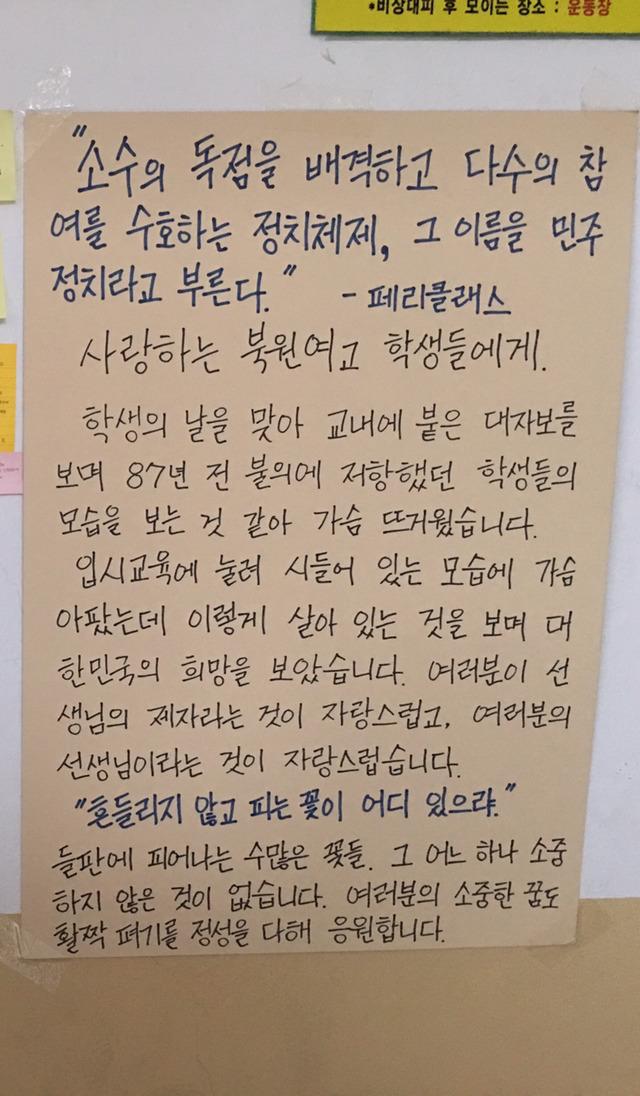 *비상대피 후 모이는 장소 : 운동장
"소수의 독점을 배격하고 다수의 참
여를 수호하는 정치체제, 그 이름을 민주
정치라고 부른다."  - 페리클래스
사랑하는 북원여고 학생들에게.
학생의 날을 맞아 교내에 붙은 대자보를
보며 87년 전 불의에 저항했던 학생들의
모습을 보는 것 같아 가슴 뜨거웠습니다.
입시교육에 눌려 시들어 있는 모습에 가슴
아팠는데 이렇게 살아 있는 것을 보며 대
한민국의 희망을 보았습니다. 여러분이 선
생님의 제자라는 것이 자랑스럽고, 여러분의
선생님이라는 것이 자랑스럽습니다.
"흔들리지 않고 피는 꽃이 어디 있으랴."
들판에 피어나는 수많은 꽃들. 그 어느 하나 소중
하지 않은 것이 없습니다. 여러분의 소중한 꿈도
활짝 펴기를 정성을 다해 응원합니다.